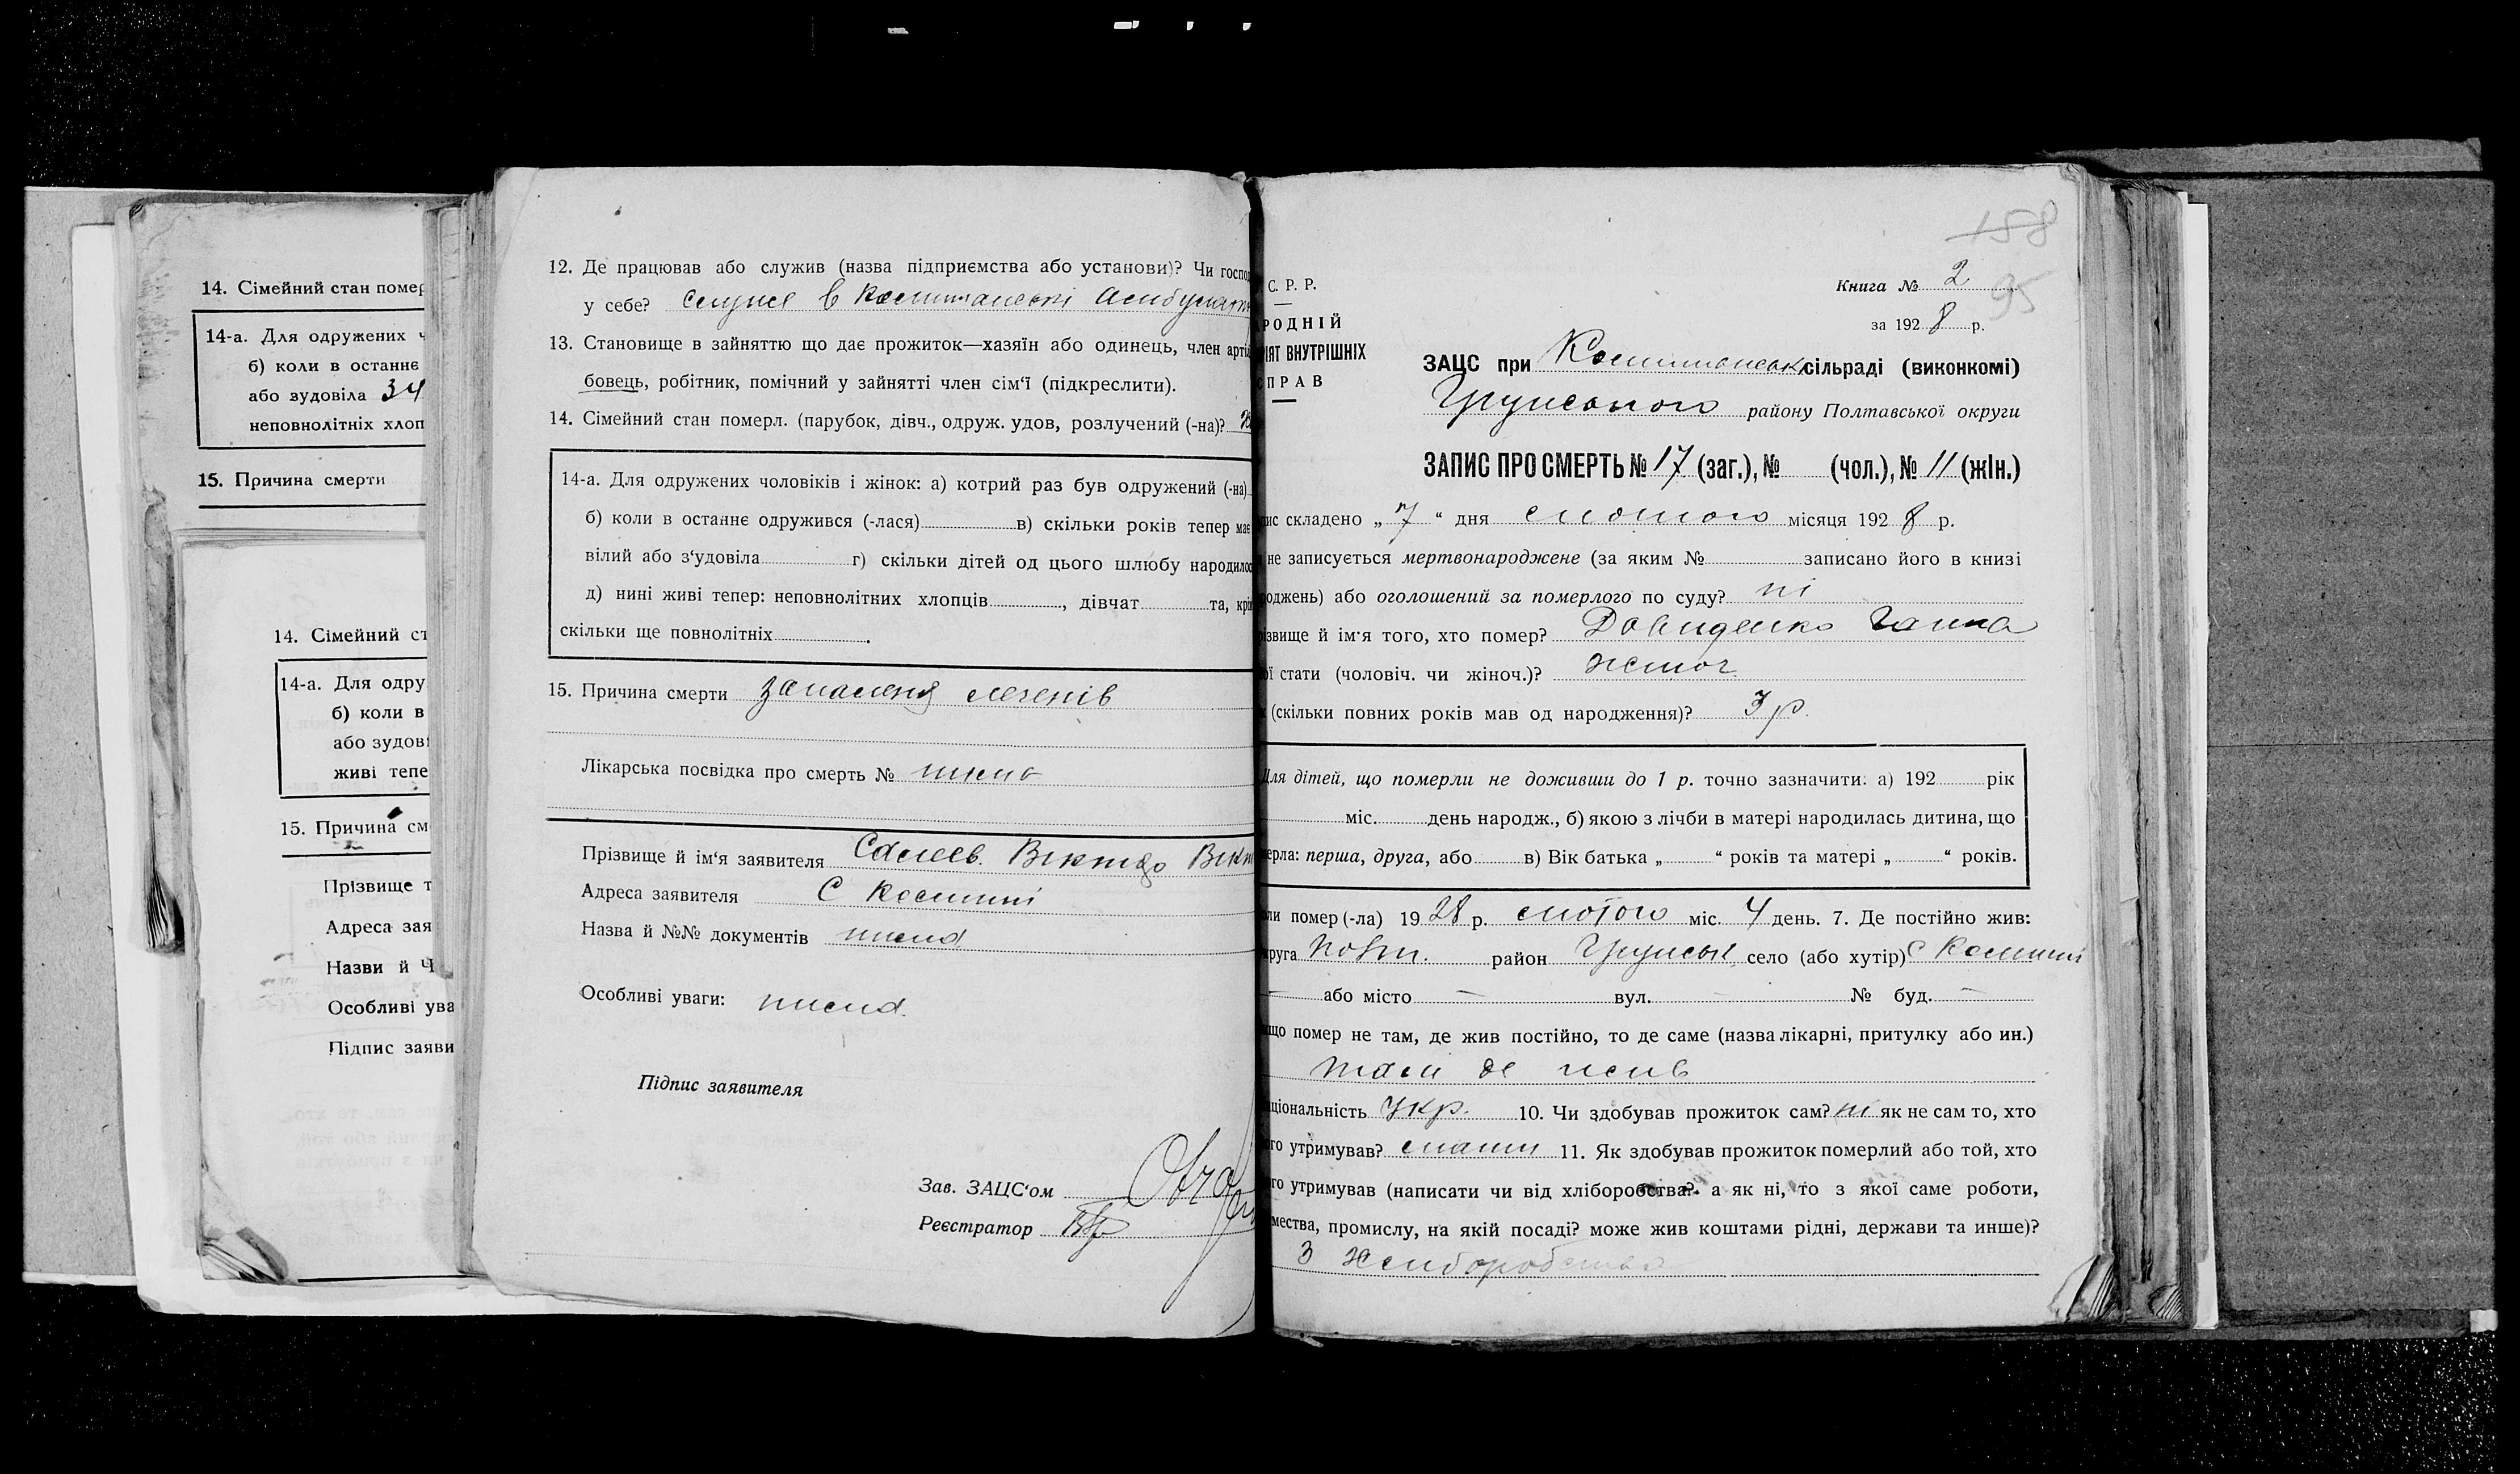 14. Сімейний стан помер
14-а. Для одружених ч
б) коли в останнє
або зудовіла 34
неповнолітніх хлоп
15. Причина смерти
14. Сімейний ст
14-а. Для одру
б) коли в
або зудові
живі тепе
15. Причина см
Прізвище т
Адреса зая
Назви й Ч
Особливі ува
Підпис заяви
12. Де працював або служив (назва підприємства або установи)? Чи господ
у себе? служив в
13. Становище в зайняттю що дає прожиток—хазяїн або одинець, член арті
бовець, робітник, помічний у зайнятті член сім'ї (підкреслити).
14. Сімейний стан померл. (парубок, дівч., одруж. удов, розлучений (-на)?
14-а. Для одружених чоловіків і жінок: а) котрий раз був одружений (-на)
б) коли в останнє одружився (-лася) в) скільки років тепер має
вілий або з'удовіла г) скільки дітей од цього шлюбу народилос
д) нині живі тепер: неповнолітних хлопців, дівчат та, крім
скільки ще повнолітніх.
15. Причина смерти запалення легенів
Лікарська посвідка про смерть № нема
Прізвище й ім'я заявителя Віктор
Адреса заявителя С
Назва й №№ документів нема
Особливі уваги: нема.
Підпис заявителя
Зав. ЗАЦС'ом
Реєстратор
158
95
С. Р. Р.
РОДНІЙ
ІЯТ ВНУТРІШНІХ
СПРАВ
Книга № 2
за 1928 р.
ЗАЦС при сільраді (виконкомі)
Грунського району Полтавської округи
ЗАПИС ПРО СМЕРТЬ № 17 (заг.), № (чол.), № 11 (жін.)
пис складено „7“ дня лютого місяця 1928 р.
не записується мертвонароджене (за яким № записано його в книзі
роджень) або оголошений за померлого по суду? ні
ізвище й ім'я того, хто помер? Давиденко Ганна
ої стати (чоловіч. чи жіноч.)? жіноч.
(скільки повних років мав од народження)? 3 р.
Для дітей, що померли не доживши до 1 р. точно зазначити: а) 192 рік
міс. день народж., б) якою з лічби в матері народилась дитина, що
мерла: перша, друга, або в) Вік батька „ “ років та матері „ “ років.
ли помер (-ла) 1928 р. лютого міс. 4 день. 7. Де постійно жив:
круга Полт. район Грунськ. село (або хутір) С
— або місто — вул. — № буд. —
що помер не там, де жив постійно, то де саме (назва лікарні, притулку або ин.)
там де жив
ціональність Укр. 10. Чи здобував прожиток сам? ні як не сам то, хто
го утримував? мати 11. Як здобував прожиток померлий або той, хто
го утримував (написати чи від хліборобства? а як ні, то з якої саме роботи,
мества, промислу, на якій посаді? може жив коштами рідні, держави та инше)?
З хліборобства